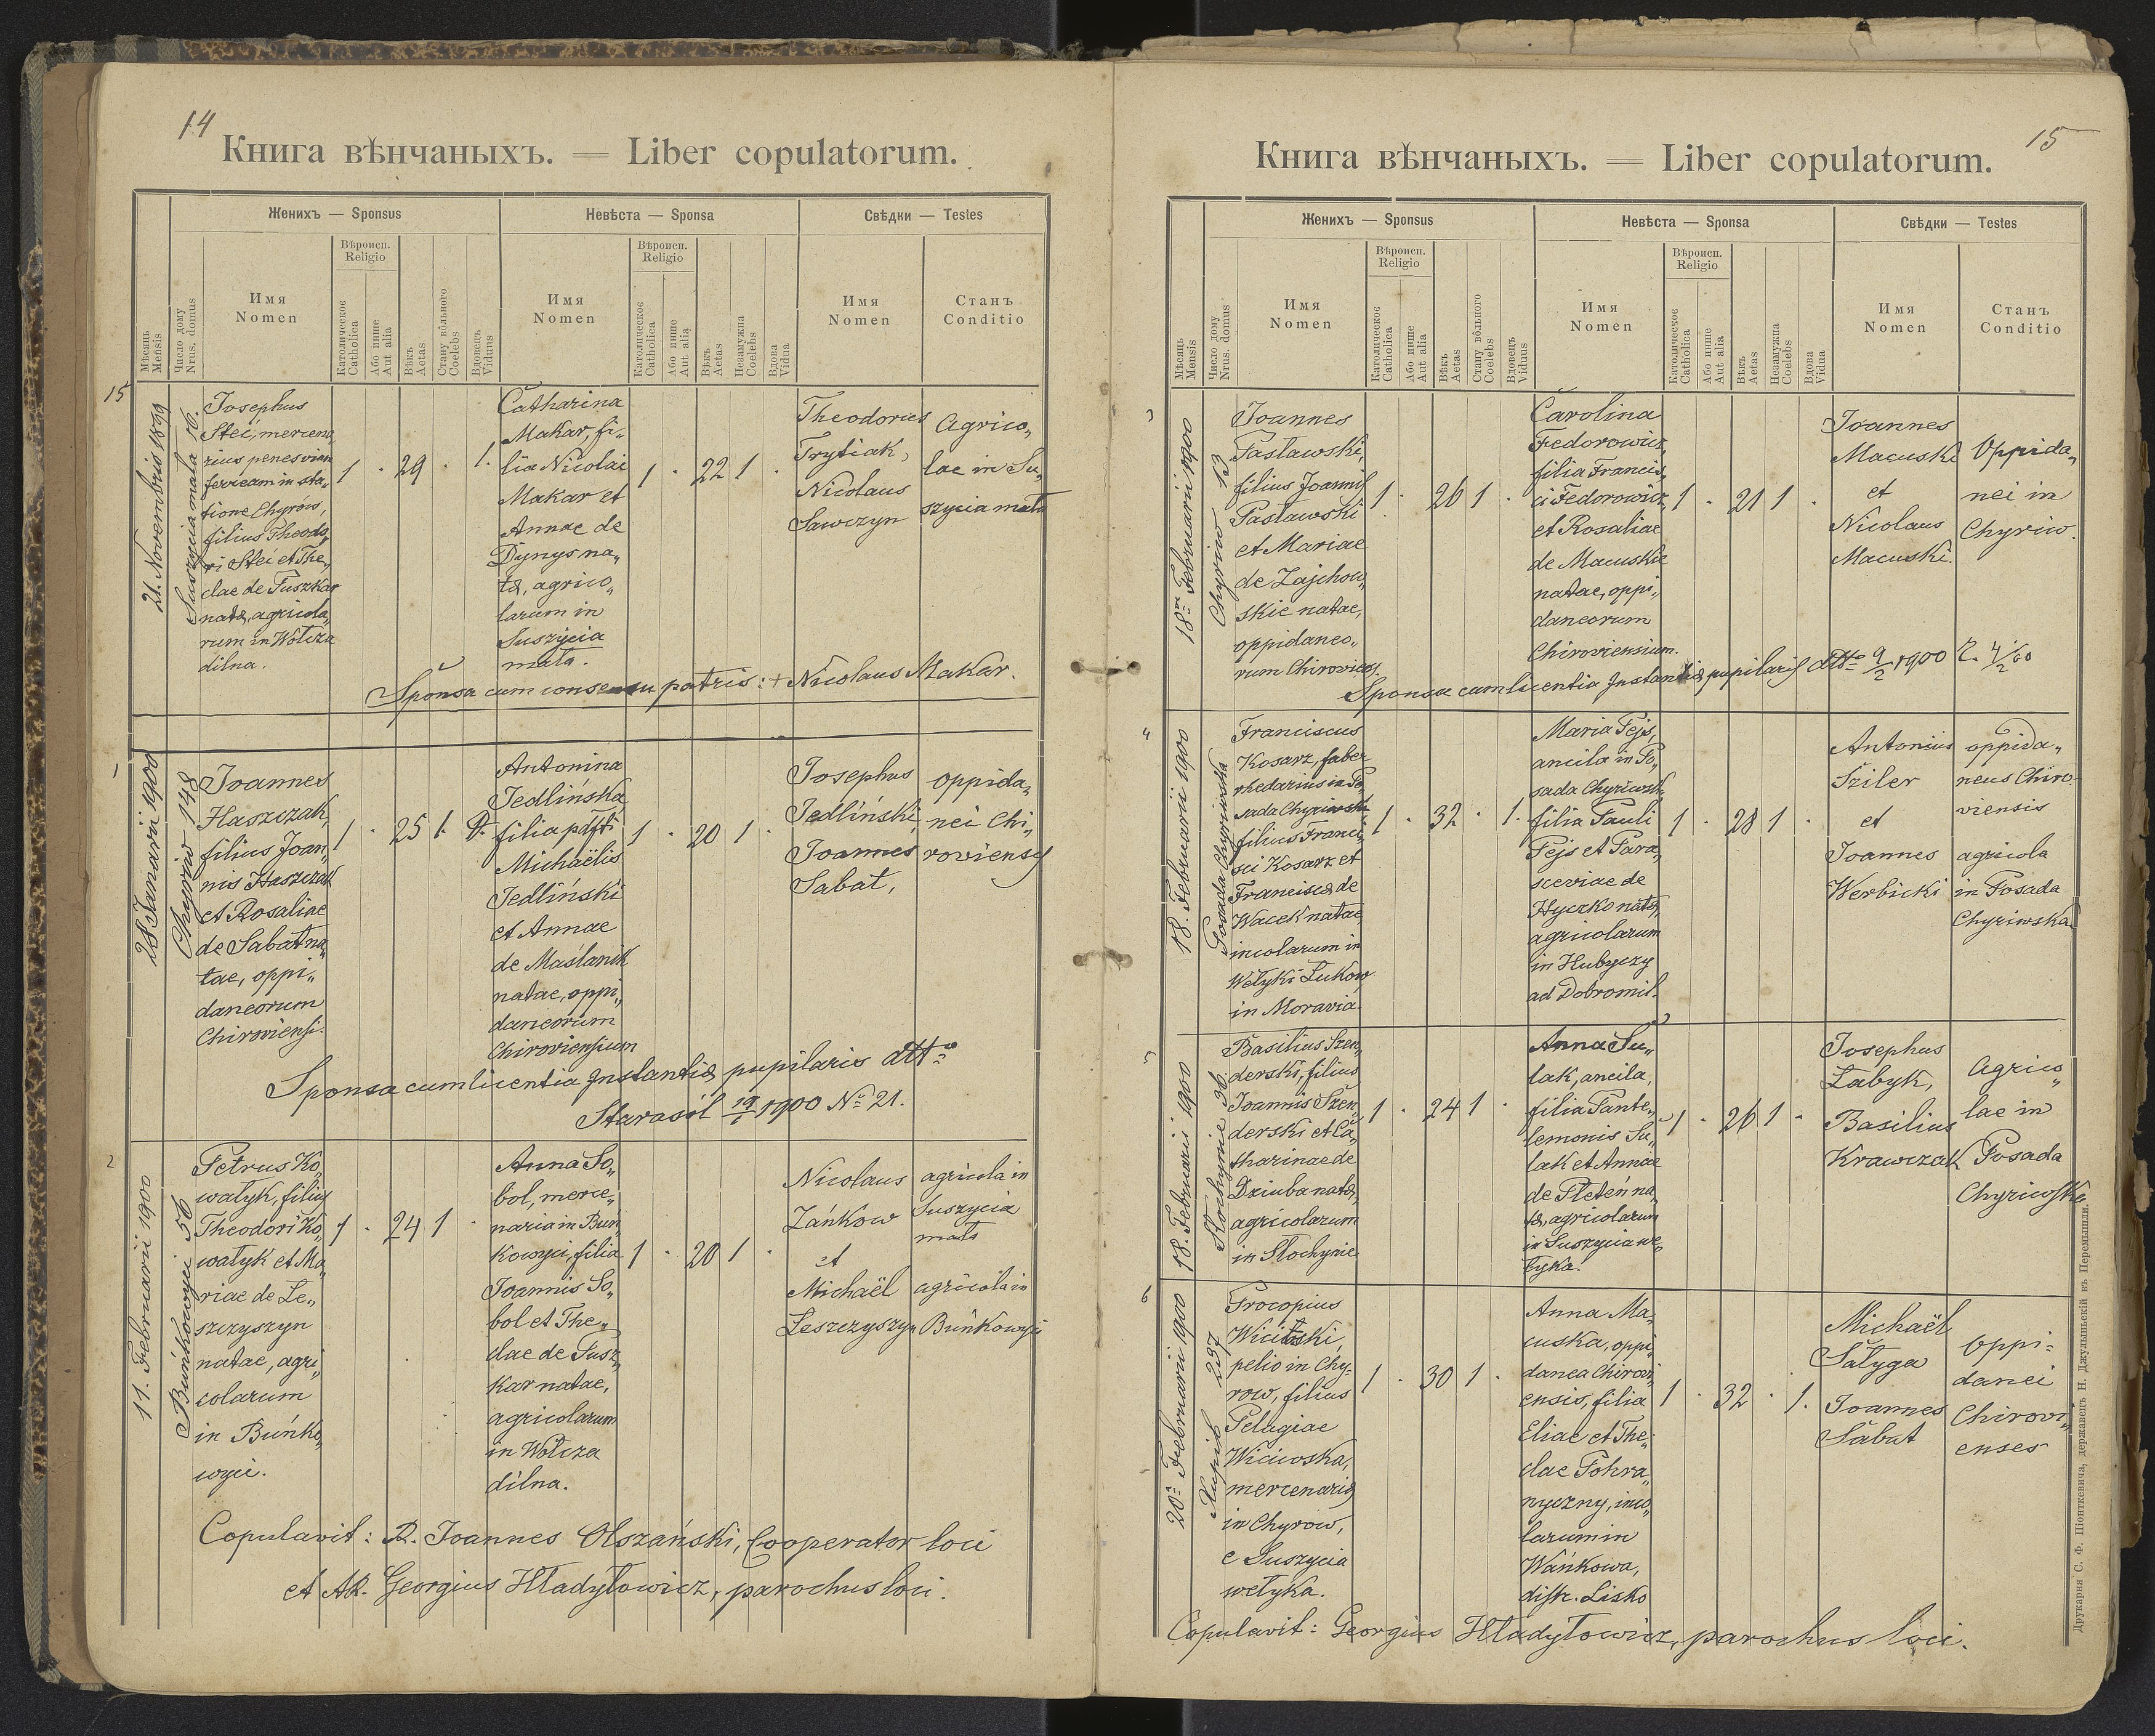 14
Книга вѣнчаныхъ. — Liber copulatorum.
Женихъ — Sponsus
Невѣста — Sponsa
Свѣдки — Testes
Мѣсяць
Mensis
Число дому
Nrus. domus
Имя
Nomen
Вѣроисп.
Religio
Католическое
Catholica
Або инше
Aut alia
Вѣкъ
Aetas
Стану вôльного
Coelebs
Вдовець
Viduus
Имя
Nomen
Вѣроисп.
Religio
Католическое
Catholica
Або инше
Aut alia
Вѣкъ
Aetas
Незамужна
Coelebs
Вдова
Vidua
Имя
Nomen
Станъ
Conditio
15
21. Novembris 1899
Suszycia mała 16.
Josephus
Steć, mercena„
rius penes viam
ferream in sta„
tione Chyrów,
filius Theodo„
ri Steć et The„
clae de Puszkar
natae, agricola„
rum in Wołcza
dilna.
1 · 29 · 1.
Catharina
Makar, fi„
lia Nicolai
Makar et
Annae de
Dynys na„
tae, agrico„
larum in
Suszycia
mała.
1 · 22 1 ·
Theodorus
Trytiak,
Nicolaus
Sawczyn
Agrico„
lae in Su„
szycia mała
Sponsa cum consensu patris: + Nicolaus Makar.
1
28 Januarii 1900
Chyriw 148
Joannes
Haszczak,
filius Joan„
nis Haszczak
et Rosaliae
de Sabat na„
tae, oppi„
daneorum
Chirowiensi.
1 · 25 1.
Antonina
Jedlińska,
filia pdfti
Michaëlis
Jedliński
et Annae
de Maślanik
natae, oppi„
daneorum
Chiroviensium
1 · 20 1 ·
Josephus
Jedliński,
Joannes
Sabat,
oppida„
nei Chi„
rovienses
Sponsa cum licentia Instantiae pupilaris dtto
Starasól 19/1 1900 No 21.
2
11. Februarii 1900
Buńkowyci 56
Petrus Ko„
wałyk, filius
Theodori Ko„
wałyk et Ma„
riae de Le„
szczyszyn
natae, agri„
colarum
in Buńko„
wyci.
1 · 24 1 ·
Anna So„
bol, merce„
naria in Buń„
kowyci, filia
Joannis So„
bol et The„
clae de Pusz„
kar natae,
agricolarum
in Wołcza
dilna.
1 · 20 1 ·
Nicolaus
Zańkow
et
Michaël
Leszczyszyn
agricola in
Suszycia
mała
agricola in
Buńkowyci
Copulavit: R. Joannes Olszański, Cooperator loci
et AR. Georgius Hładyłowicz, parochus loci.
15
Книга вѣнчаныхъ. — Liber copulatorum.
Женихъ — Sponsus
Невѣста — Sponsa
Свѣдки — Testes
Мѣсяць
Mensis
Число дому
Nrus. domus
Имя
Nomen
Вѣроисп.
Religio
Католическое
Catholica
Або инше
Aut alia
Вѣкъ
Aetas
Стану вôльного
Coelebs
Вдовець
Viduus
Имя
Nomen
Вѣроисп.
Religio
Католическое
Catholica
Або инше
Aut alia
Вѣкъ
Aetas
Незамужна
Coelebs
Вдова
Vidua
Имя
Nomen
Станъ
Conditio
3
18. Februarii 1900
Chyriw 13
Joannes
Pasławski,
filius Joannis
Pasławski
et Mariae
de Zajchow„
skie natae,
oppidaneo„
rum Chiroviens.
1 · 26 1 ·
Carolina
Fedorowicz,
filia Francis„
ci Fedorowicz
et Rosaliae
de Macuskie
natae, oppi„
daneorum
Chiroviensium.
1 · 21 1 ·
Joannes
Macuski
et
Nicolaus
Macuski.
Oppida„
nei in
Chyriw.
Sponsa cum licentia Instantiae pupilaris dtto 9/2 1900
4
18. Februarii 1900
Posada Chyriwska
Franciscus
Kosarz, faber
rhedarius in Po„
sada Chyriwska
filius Franci„
sci Kosarz et
Franciscae de
Wacek natae,
incolarum in
Wełyki Lukow
in Moravia.
1 · 32 · 1.
Maria Fejs,
ancila in Po„
sada Chyriwsk.
filia Pauli
Fejs et Para„
sceviae de
Hyczko natae,
agricolarum
in Hubyczy
ad Dobromil.
1 · 28 1 ·
Antonius
Sziler
et
Joannes
Werbicki
oppida„
neus Chiro„
viensis
agricola
in Posada
Chyriwska
5
18. Februaris 1900
Słochynie 36.
Basilius Szen„
derski, filius
Joannis Szen„
derski et Ca„
tharinae de
Dziuba natae,
agricolarum
in Słochynie
1 · 24 1 ·
Anna Su„
lak, ancila,
filia Pante„
lemonis Su„
lak et Annae
de Pleteń na„
tae, agricolarum
in Suszycia we„
łyka.
1 · 26 1 ·
Josephus
Łabyk,
Basilius
Krawczak
Agrico„
lae in
Posada
Chyriwska
6
20. Februarii 1900
Procopius
pelio in Chy„
row, filius
Pelagiae
Wiciwska,
mercenaria
in Chyrow,
e Suszycia
wełyka.
1 · 30 1 ·
Anna Ma„
cuska, oppi„
danea Chirovi„
ensis, filia
Eliae et The„
clae Pohra„
nyczny, inco„
larum in
Wańkowa,
distr. Lisko
1 · 32 · 1.
Michaël
Sałyga
Joannes
Sabat
Oppi„
danei
Chirovi„
enses
Copulavit: Georgius Hładyłowicz, parochus loci.
Друкарня С. Ф. Піонткевича, державець Н. Джулыньскій въ Перемышли.